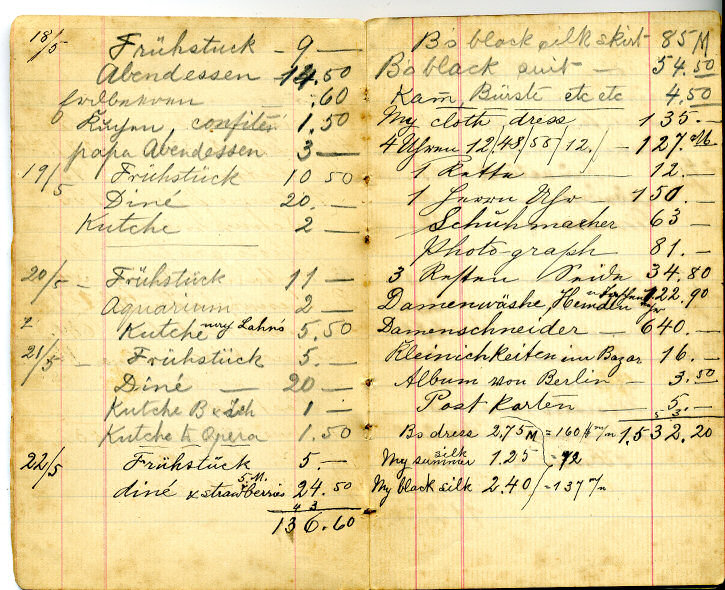 18/5 Frühstuck - 9 —
Abendessen - 14.50
.60
Kuyen, confiteri 1.50
papa Abendessen 3 —
19/5 Frühstück 10 50
Diné 20. —
Kutche 2 —
20/5 - Frühstück 11 —
Aquarium 2 —
Kutche my Lahn's 5.50
21/5 - Frühstück 5. —
Diné — 20 —
Kutche B & Ich 1 —
Kutche to Opera 1.50
22/5 Frühstück 5. —
5. M.
diné & strawberries 24.50
4 3
136.60
B's black silk skirt 85 M
B's black suit — 54.50
Kam̅, Bürste etc etc 4.50
My cloth dress 135. —
4 Uhren 12/48/55/12./ — 127. M.
1 Kette — 12. —
1 Herrn Uhr — 150. —
Schuhmacher 63 —
Photograph 81. —
3 Resten Seide 34.80
Damenwäshe, Hemden 122.90
Damenschneider — 640. —
Kleinichkeiten im Bazar 16. —
Album von Berlin — 3.50
Post Karten — 5. —
5 3
Bs dress 2.75 M = 160 1.532.20
My summer silk 1.25 = 72
My black silk 2.40 = 137